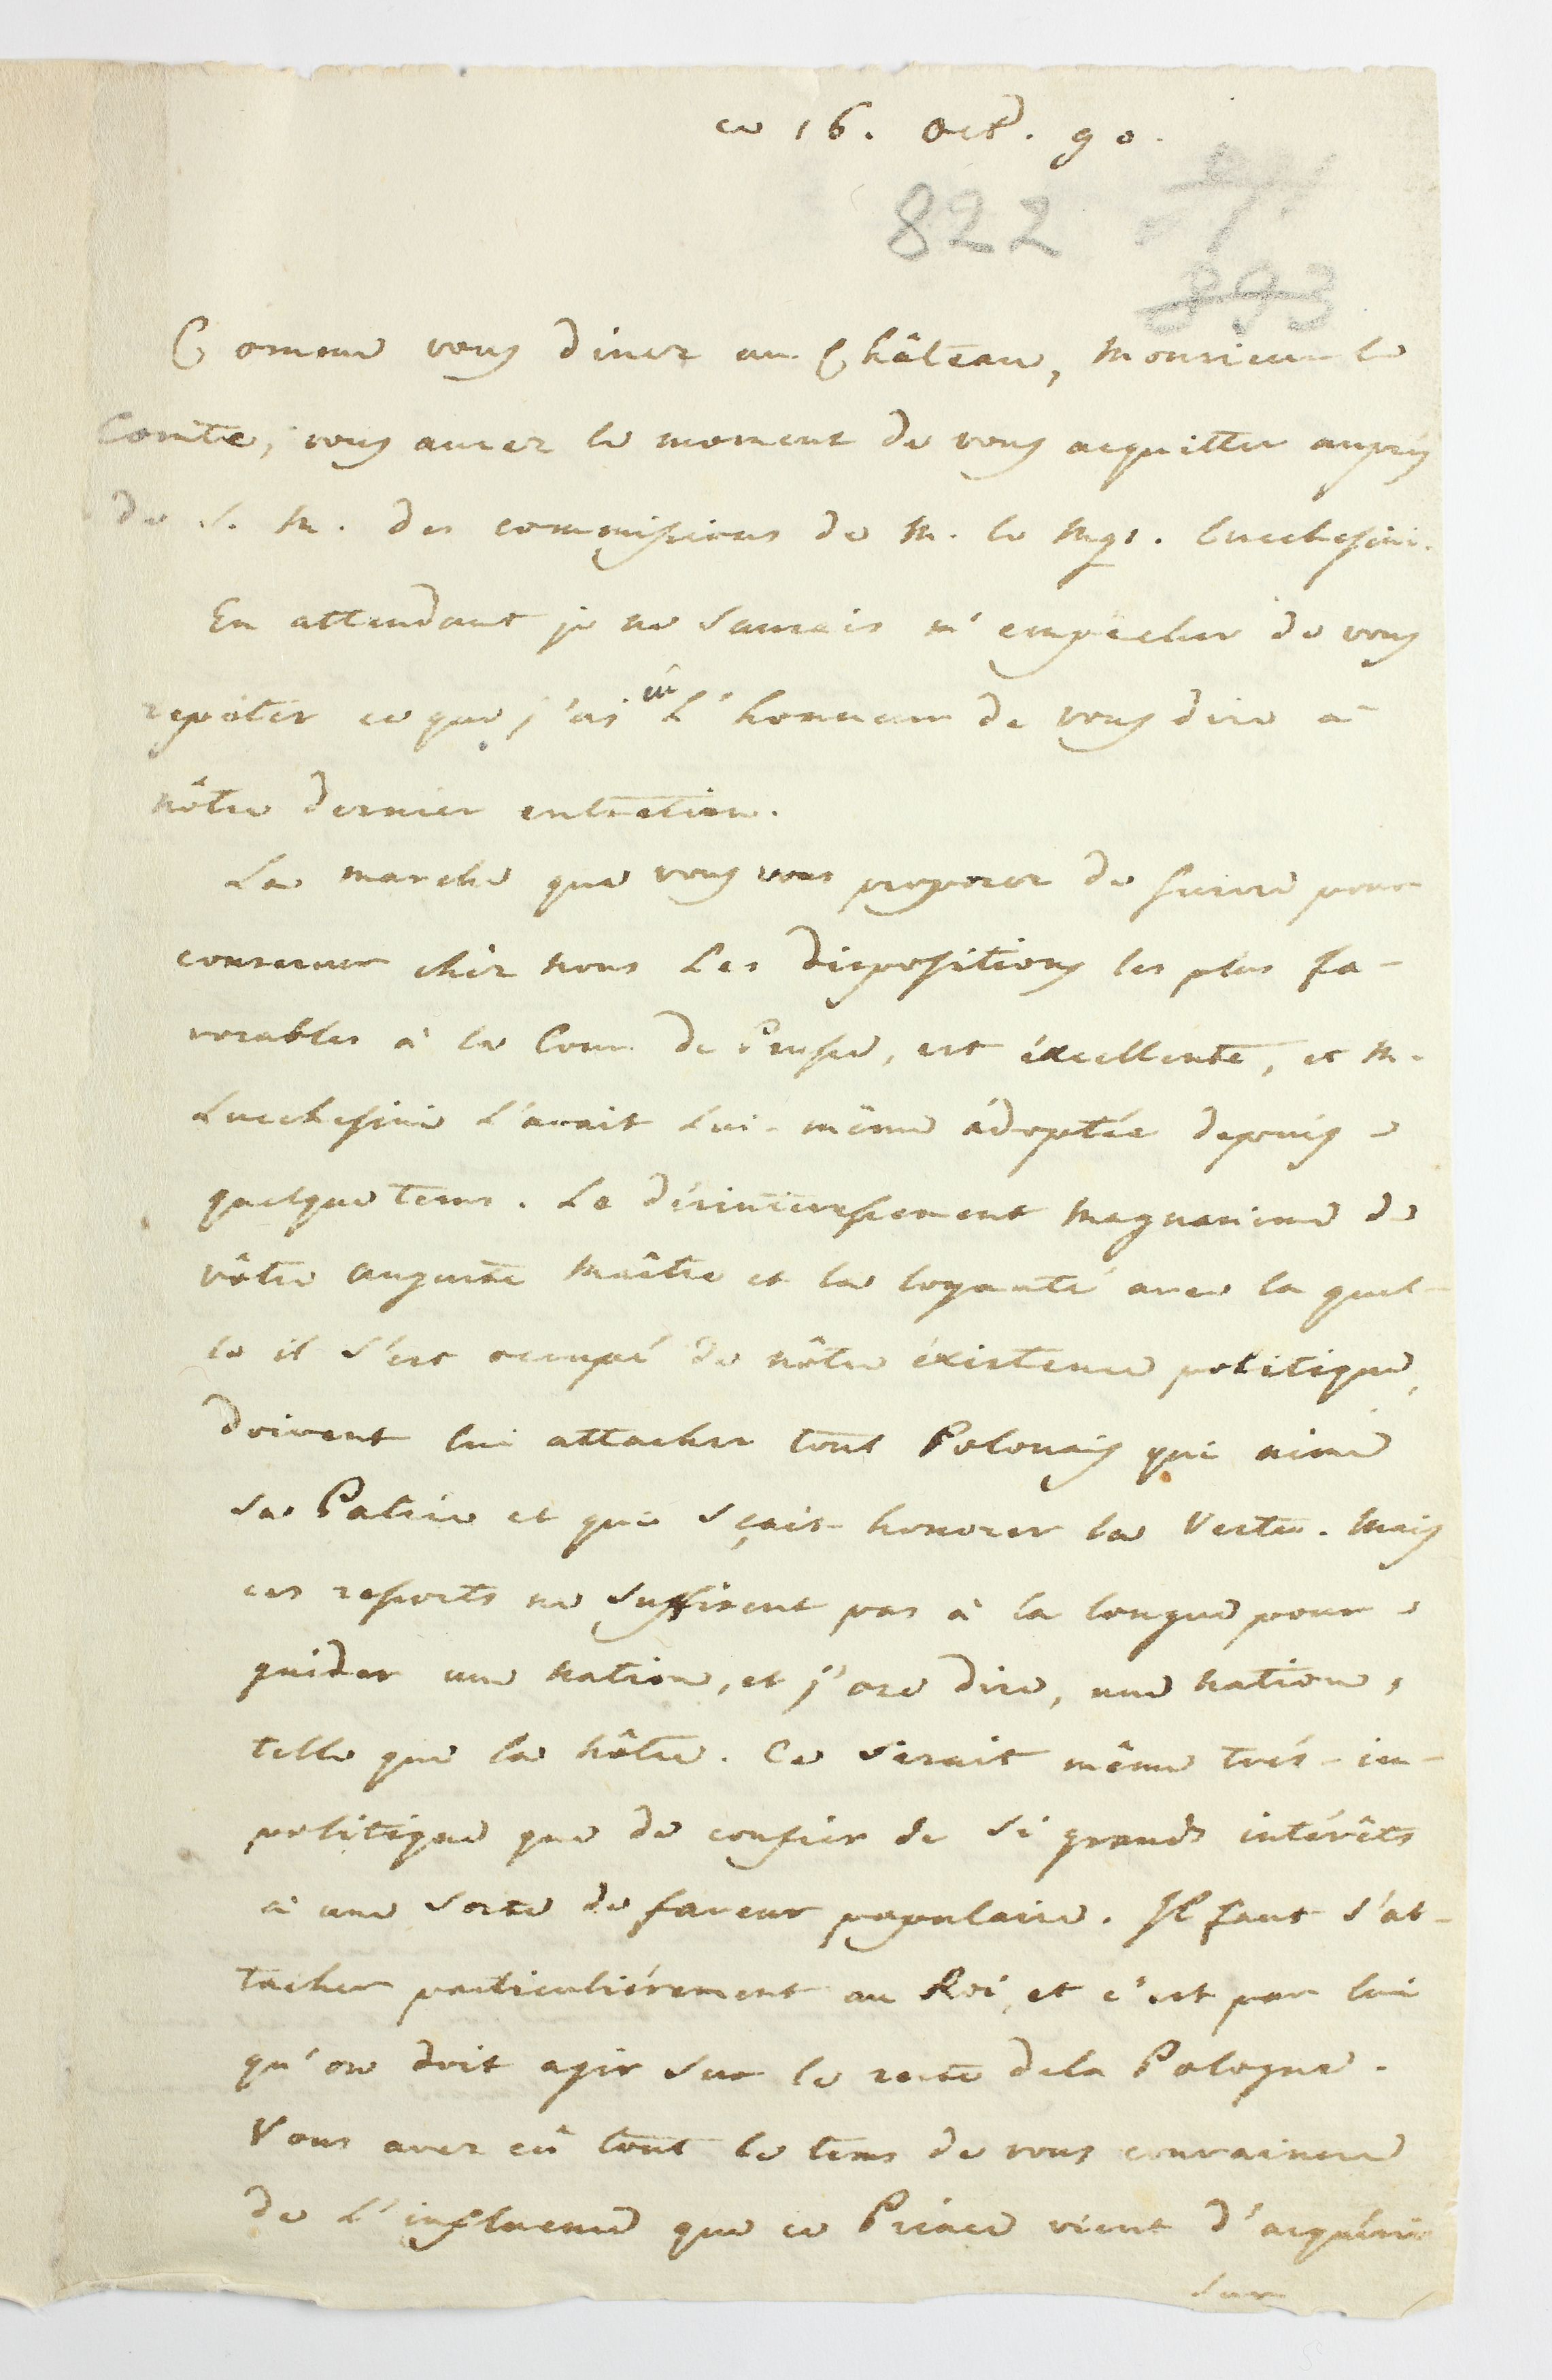 ce 16. Oct. 90.
822
893
Comme vous dinez au Château, Monsieur le
Comte, vous aurez le moment de vous acquitter auprès
de S. M. des commissions de M. le Mqs. Lucchesini.
En attendant je ne saurais m'empêcher de vous
repéter ce que j'ai eû l'honneur de vous dire à
nôtre dernier entretien.
La marche que vous vous proposez de suivre pour
conserver chéz nous les dispositions les plus fa-
vorables à la Cour de Prusse, est éxcellente, et M.
Lucchesini l'avait lui-même adoptée depuis
quelque tems. Le désintéressement magnanime de
vôtre auguste Maître et la loyauté avec la quel-
le il s'est occupé de nôtre éxistence politique,
doivent lui attacher tout Polonais qui aime
sa Patrie et qui sçait honorer la Vertu. Mais
ces ressorts ne suffisent pas à la longue pour
guider une nation, et j'ose dire, une nation,
telle que la nôtre. Ce serait même trés-im-
politique que de confier de si grands intérêts
à une sorte de faveur populaire. Il faut s'at-
tacher particuliérement au Roi, et c'est par lui
qu'on doit agir sur le reste dela Pologne.
Vous avez eû tout le tems de vous convaincre
de l'influence que ce Prince vient d'acquérir
sur